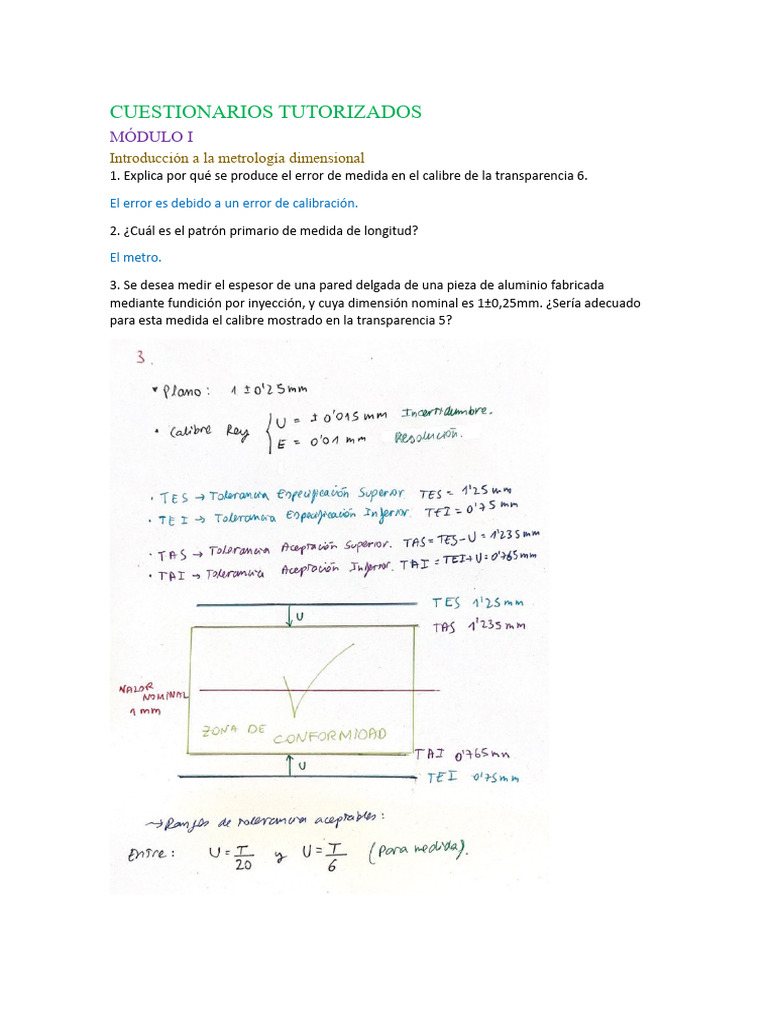 CUESTIONARIOS TUTORIZADOS
MÓDULO I
Introducción a la metrología dimensional
1. Explica por qué se produce el error de medida en el calibre de la transparencia 6.
El error es debido a un error de calibración.
2. ¿Cuál es el patrón primario de medida de longitud?
El metro.
3. Se desea medir el espesor de una pared delgada de una pieza de aluminio fabricada
mediante fundición por inyección, y cuya dimensión nominal es 1±0,25mm. ¿Sería adecuado
para esta medida el calibre mostrado en la transparencia 5?
3.
* Plano: 1 ± 0'25mm
• Calibre Rey { U = ± 0'015 mm Incertidumbre.
E = 0'01 mm Resolución.
• TES → Tolerancia Especificación Superior TES = 1'25 mm
• TEI → Tolerancia Especificación Inferior. TEI = 0'75 mm
• TAS → Tolerancia Aceptación Superior. TAS = TES - U = 1'235 mm
• TAI → Tolerancia Aceptación Inferior. TAI = TEI + U = 0'765 mm
TES 1'25mm
U
TAS 1'235 mm
VALOR
NOMINAL
1 mm
ZONA DE CONFORMIDAD
TAI 0'765mm
U
TEI 0'75mm
→ Rangos de tolerancia aceptables:
Entre: U = T/20 y U = T/6 (Para medida).